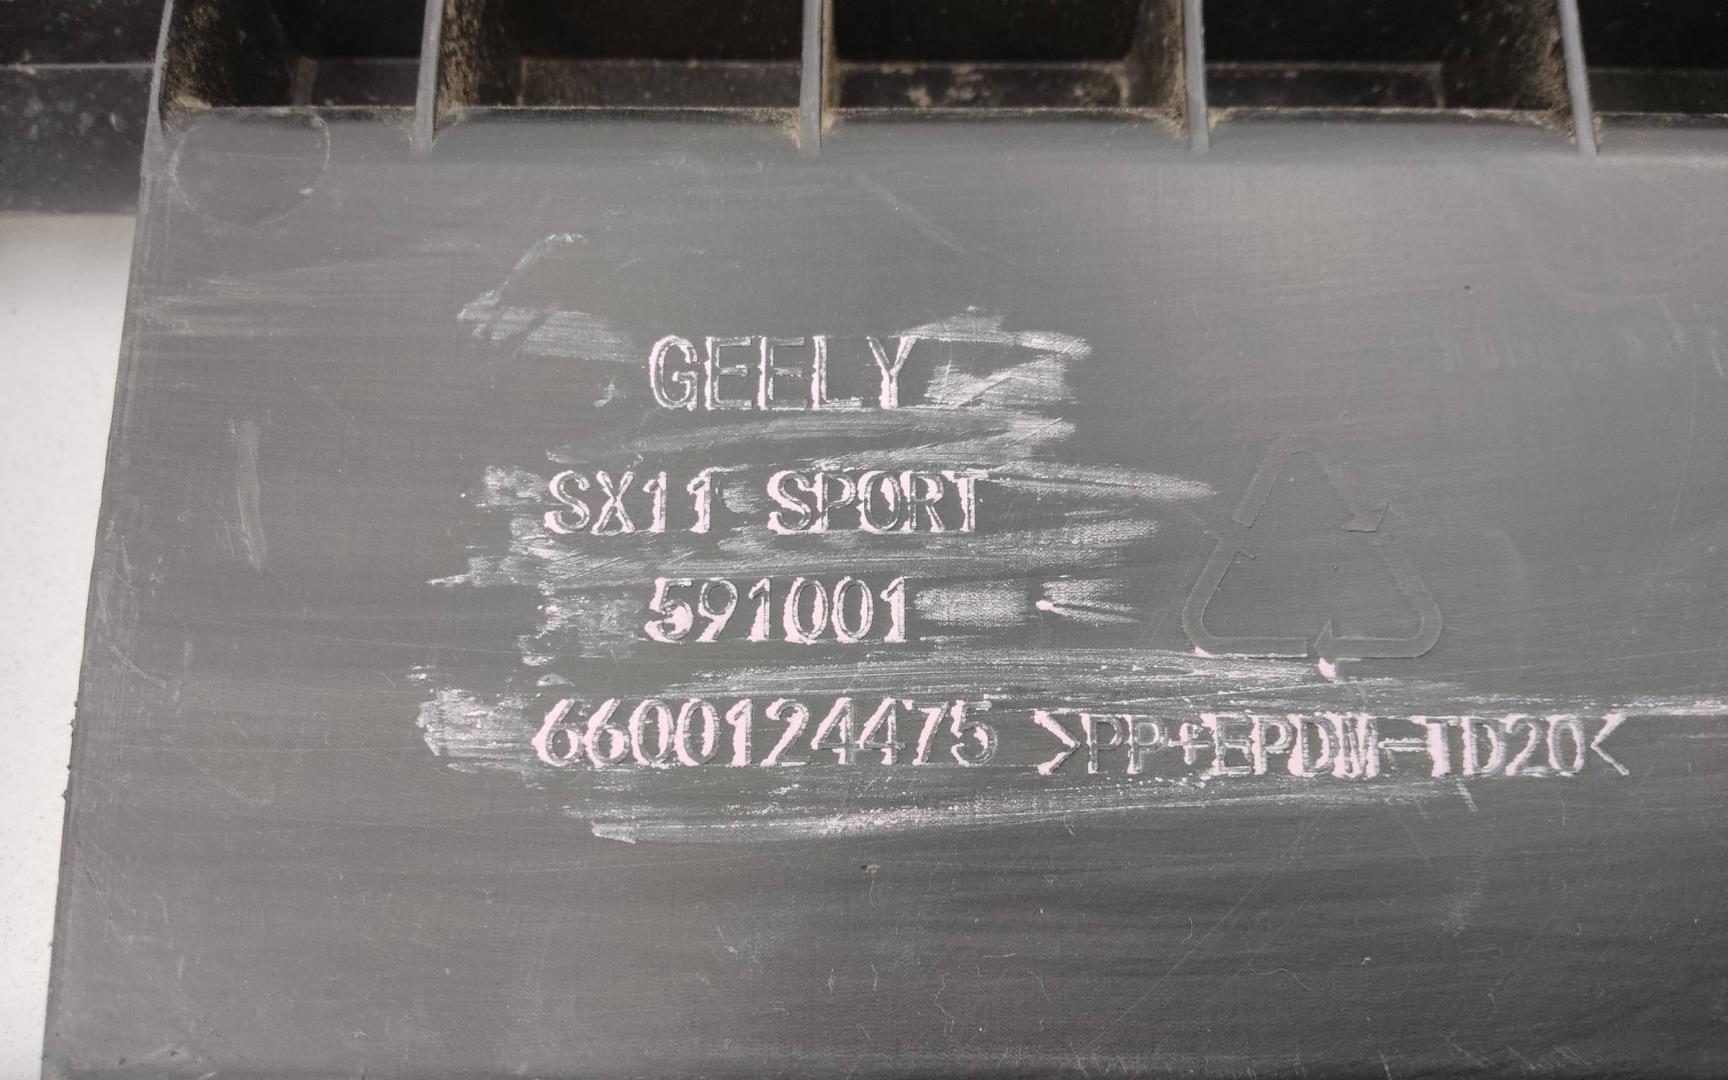 GEELY
SX11 SPORT
591001
6600124475 >PP+EPDM-TD20<